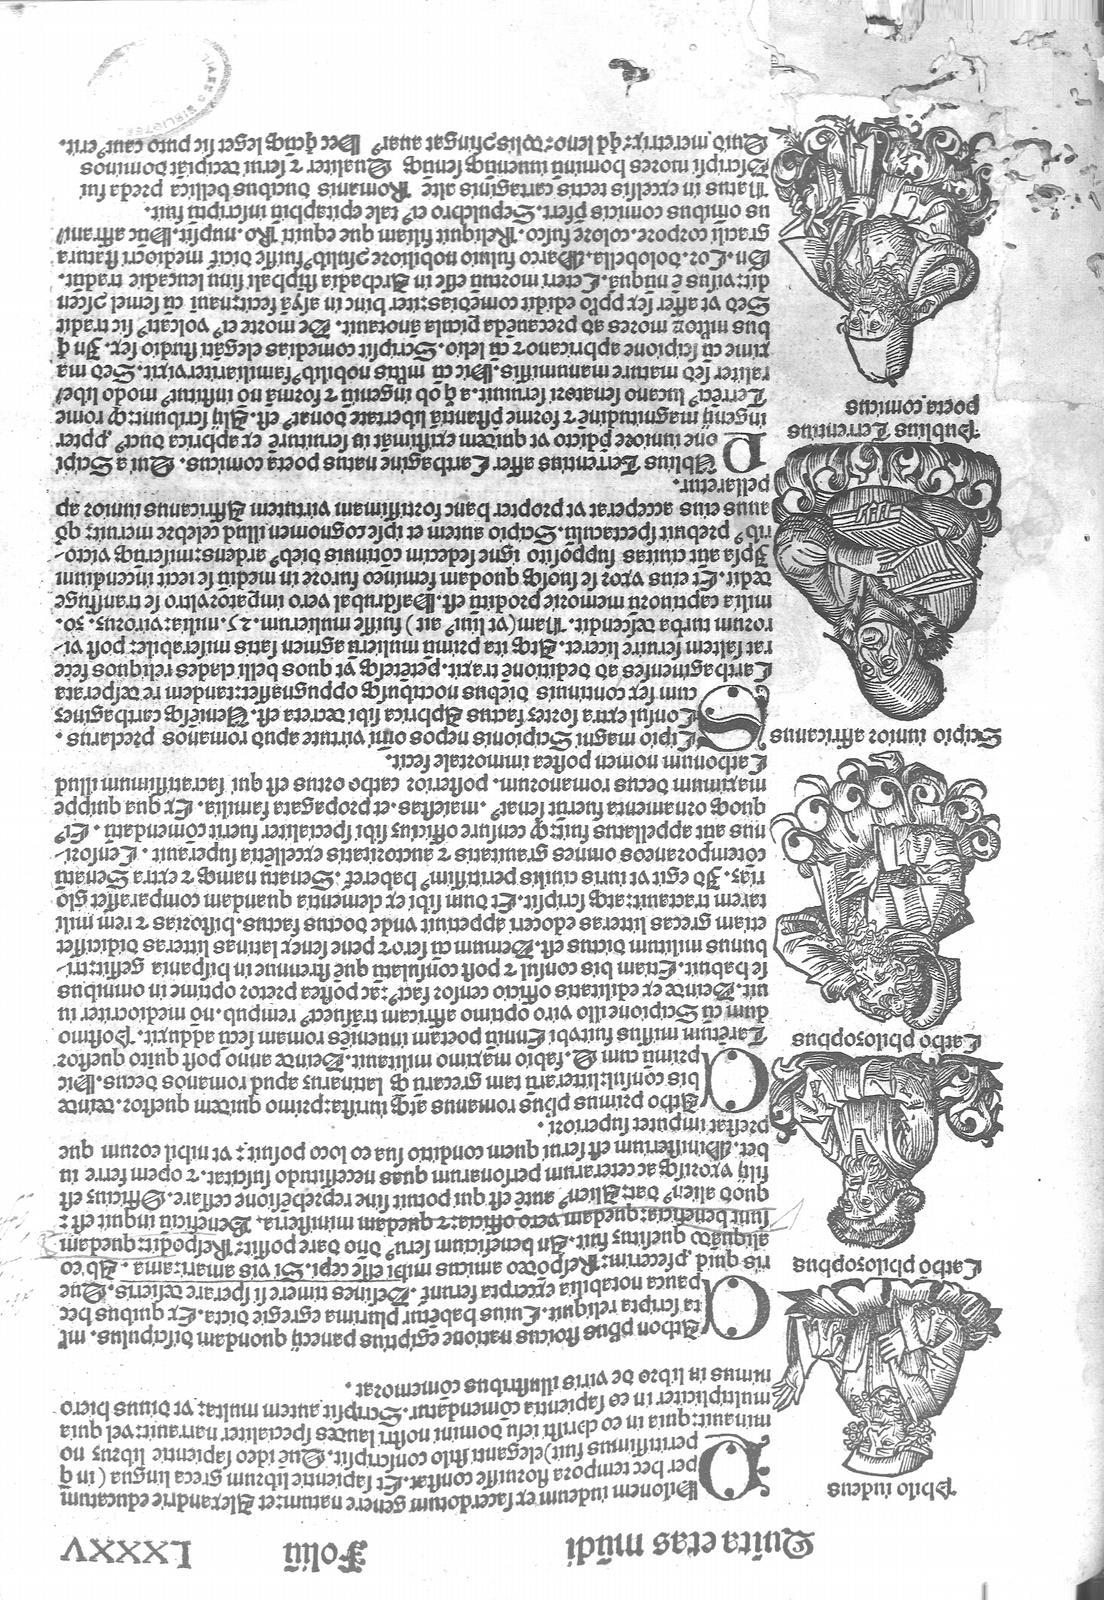 Quīta etas mūdi Foliū LXXXV
Philo iudeus
Philonem iudeum et sacerdotum genere natum: et Alexandrie educatum
per hec tempora floruisse constat. Et sapientie librum greca lingua (in q̄
peritissimus fuit) eleganti stilo conscripsit. Que ideo sapientie liber⁊ no
minauit: quia in eo christi iesu domini nostri laudes specialiter narrauit: vel quia
multipliciter in eo sapientia comendatur. Scripsit autem multa: vt diuus hiero
nimus in libro de viris illustribus comemorat.
Carbo philosophus
Arbon phūs stoicus natione egiptius panecij quondam discipulus. ml
ta scripta reliquit. Cuius habētur plurima egregie dicta. Ex quibus hec
pauca notabilia excerpta ferunt. Desines timere si sperare desieris. Que
ris quid pfecerim: Respōdeo amicus mihi esse cepi. Si vis amari: ama. Ab eo
aliquādo quesitus fuit. An beneficium seru⁹ dno dare possit: Respōdit: quedam
sunt beneficia: quedam vero officia: ⁊ quedam ministeria. Beneficiū inquit est:
quod alien⁹ dat: Alien⁹ autē est qui potuit sine reprehēsione cessare. Officiū est
filij vxorisq ac ceterarum personarum quas necessitudo suscitat. ⁊ opem ferre iu
bet. Ministerium est serui quem conditio sua eo loco posuit: vt nihil eorum que
prestat imputet superiori.
Carbo philosophus
Atho primus phūs romanus atq iurista: primo quidem questor. deinde
bis consul: litterarū tam grecarū q̄ latinarū apud romanos decus. Hic
primū cum Q. fabio maximo militauit. Deinde anno post quīto questor
Tarētum missus fuit vbi Ennium poetam inueniēs romam secū adduxit. Postmo
dum cū Scipione illo viro optimo affricam trāsiecit. rempub. nō mediocriter iu
uit. Deinde ex edilitatis officio censor fact⁹: ac postea pretor optime in omnibus
se habuit. Etiam bis consul ⁊ post consulatū quē strennue in hispania gessit: tri-
bunus militum dictus est. Demum cū sero ⁊ pene senex latinas litteras didicisset
etiam grecas litteras edoceri appetiuit vnde doctus factus. historias ⁊ rem mili
tarem tractauit: atq scripsit. Et dum sibi ex clementia quandam comparasset glo
riā. Id egit vt iuris ciuilis peritissim⁹ haberet⁹. Senatu namq ⁊ extra Senatū
cōtemporaneos omnes grauitatis ⁊ auctoritatis excellētia superauit. Censori-
nus aut appellatus fuit: q̄ censure officiū sibi specialiter fuerit comendatū. Ei⁹
quoq ornamenta fuerūt senat⁹. maiestas. et propagata familia. Ex qua quippe
maximum decus romanorum. posterior catho ortus est qui sacratissimum illud
Cathonum nomen postea immortale fecit.
Scipio iunior affricanus
Scipio magni Scipionis nepos omī virtute apud romanos preclarus.
Consul extra sortes factus Aphrica sibi decreta est. Ueniēsq carthaginēs
cum sex continuis diebus noctibusq oppugnasset: tandem re desperata
Carthaginenses ad deditionē traxit. petētesq vt quos belli clades reliquos fece
rat saltem seruire liceret. Atq ita primū mulierū agmen satis miserabile: post vi-
rorum turba descendit. Nam (vt liui⁹ ait) fuisse mulierum. 25. milia: virorū. 30.
milia captiuorū memorie proditū est. Hasdrubal vero imperator vltro se transfuge
dedit. Et eius vxor se suosq quondam femineo furore in mediū se iecit incendium
Ipsa aut ciuitas supposito igne sedecim cōtinuis dieb⁹ ardens: miserūq victo-
rib⁹ prebuit spectaculū. Scipio autem et ipse cognomen illud celebre meruit: qd
auus eius acceperat vt propter hanc fortissimam virtutem Affricanus iunior ap
pellaretur.
Publius Terrentius
poeta comicus
Ublius Terrentius affer Carthagine natus poeta comicus. Qui a Scipi
one iuniore pdicto vt quidem existimāt in seruitutē ex aphrica duct⁹ ppter
ingenij magnitudinē ⁊ forme prestantiā libertate donat⁹ est. Alij scribunt: q̄ rome
Terēci⁹ lucano senatori seruiuit. a q̄ ob ingeniū ⁊ formā nō institut⁹ modo libe/
raliter sed mature manumissus. Hic cū mltis nobilib⁹ familiariter vixit. Sed ma
xime cū scipione aphricano ⁊ cū lelio. Scripsit comedias eleganti studio sex. In q
bus mltoꝝ mores ad precauēda picula ānotauit. De morte ei⁹ volcati⁹ sic tradit
Sed vt affer sex pplo edidit comedias: iter hinc in asiā fecit: naui cū semel ascen
dit: visus ē nunquā. Ceteri mortuū esse in Archadia stiphali sinu leucadie tradūt.
Gn. Cor. dolobella. Marco fuluio nobiliore cōsulib⁹. fuisse dicit⁹ mediocri statura
gracili corpore. colore fusco. Reliquit filiam que equiti Ro. nupsit. Huc affrani/
us omibus comicis pfert. Sepulchro ei⁹ tale epitaphiū inscriptū fuit.
Natus in excelsis tectis cartaginis alte Romanis ducibus bellica preda fui
Descripsi mores hominū iuuenūq senūq Qualiter ⁊ serui decipiāt dominos
Quid meretrix: qd leno: dolis cōfingat auar⁹ Hec quisq leget sic puto caut⁹ erit.